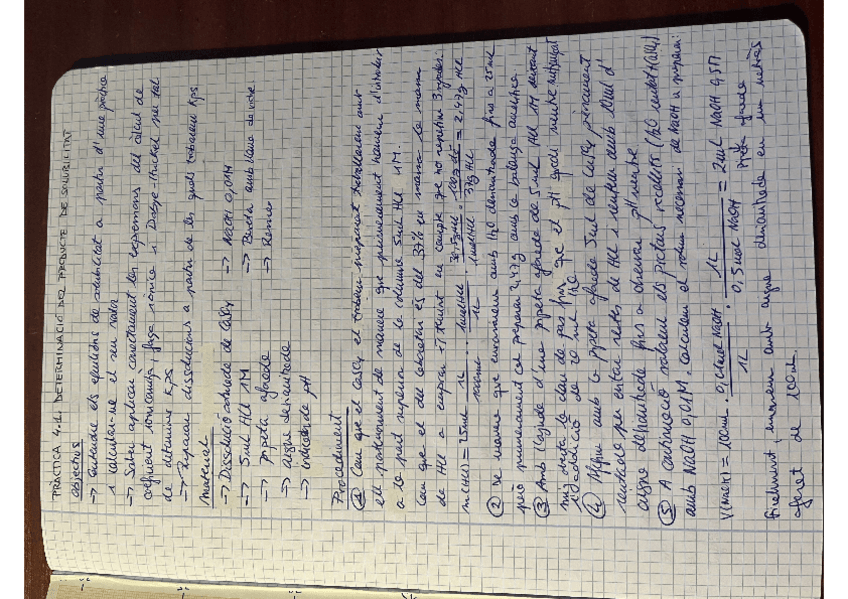 PRÀCTICA 4.1: DETERMINACIÓ DEL PRODUCTE DE SOLUBILITAT
objectius
→ Entendre els equilibris de solubilitat a partir d'una pràctica
i calcular-ne el seu valor
→ Saber aplicar correctament les expressions del càlcul de
coeficient força iònica i Debye-Hückel per tal
de determinar Kps
→ Preparar dissolucions a partir de les quals Kps.
Material
→ Dissolució saturada de CaSO4 → NaOH 0,01M
→ 5 ml HCl 1M → Bureta amb clau de
→ pipeta aforada → Reïna
→ aigua desionitzada
→ indicador de pH
Procediment
① Com que el CaSO4 el
ell prèviament de manera que primerament haurem d'introduir
a la part superior de la columna 5 ml HCl 1M.
Com que el del laboratori és del 37% en massa la massa
de HCl a
m(HCl) = 25 ml · 1L/1000ml · 1mol HCl/1L · HCl/1mol HCl · 100g /37g HCl = 2,47g HCl
② De manera que enrasarem amb H2O desionitzada fins a 25 ml
però primerament cal preparar 2,47g amb la balança analítica
③ Amb l'ajuda d'una pipeta aforada de 5 ml HCl 1M
oberta la clau de pas fins que el pH
addició de 20 ml H2O
④ Afegim amb la pipeta aforada 5 ml de CaSO4 prèviament
per evitar restes de HCl i rentem amb 10 ml d'
aigua desionitzada fins a observar pH neutre
⑤ A continuació valorem els protons recollits (H2O CaSO4)
amb NaOH 0,01M. Calculem el volum necessari de NaOH a preparar:
V(NaOH) = 100 ml · 0,01 mol NaOH/1L · 1L/0,5 mol NaOH = 2 ml NaOH 0,5M
pipeta aforada
Finalment, enrasem amb aigua desionitzada en un matràs
aforat de 100 ml.